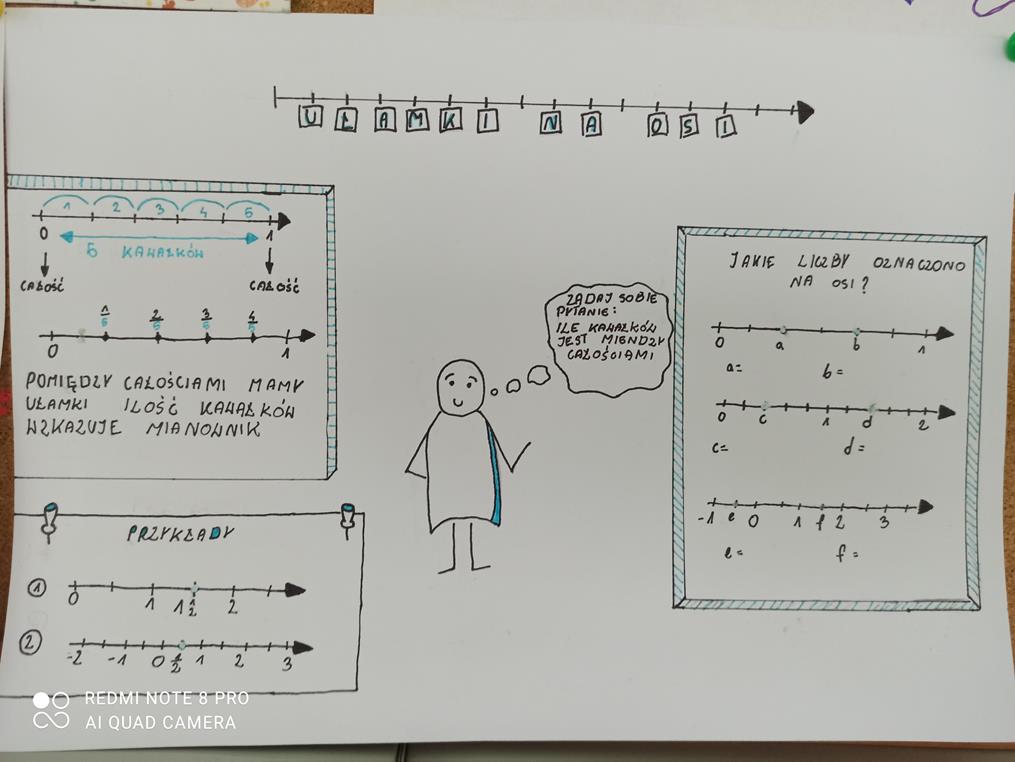 UŁAMKI NA OSI
1 2 3 4 5
0 1
5 KAWAŁKÓW
CAŁOŚĆ CAŁOŚĆ
1/5 2/5 3/5 4/5
0 1
POMIĘDZY CAŁOŚCIAMI MAMY
UŁAMKI ILOŚĆ KAWAŁKÓW
WZKAZUJE MIANOWNIK
PRZYKŁADY
1 0 1 1 1/2 2
2 -2 -1 0 1/2 1 2 3
ZADAJ SOBIE
PYTANIE:
ILE KAWAŁKÓW
JEST MIENDZY
CAŁOŚCIAMI
JAKIE LICZBY OZNACZONO
NA OSI?
0 a b 1
a= b=
0 c 1 d 2
c= d=
-1 e 0 1 f 2 3
e= f=
REDMI NOTE 8 PRO
AI QUAD CAMERA